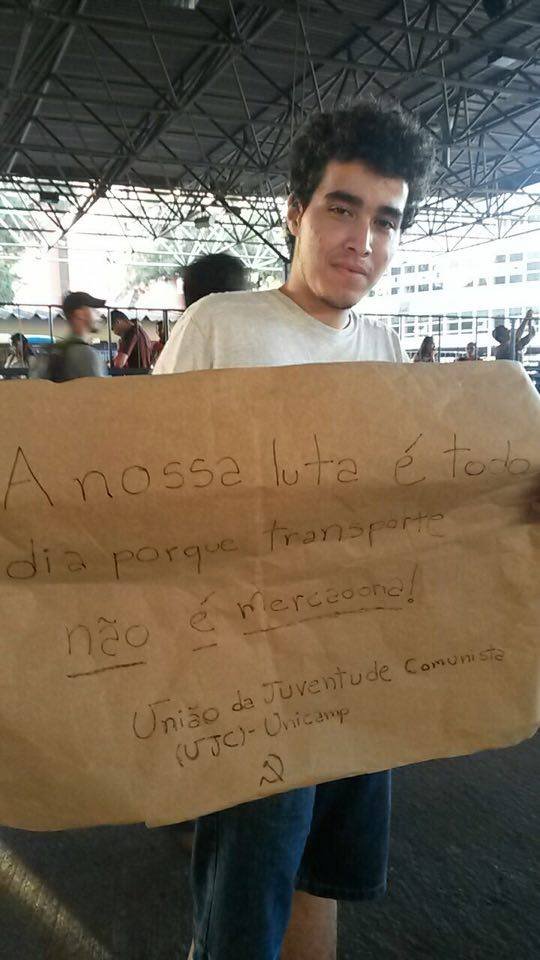 A nossa luta é todo
dia porque transporte
não é mercadoria!
União da Juventude Comunista
(UJC)-Unicamp
☭